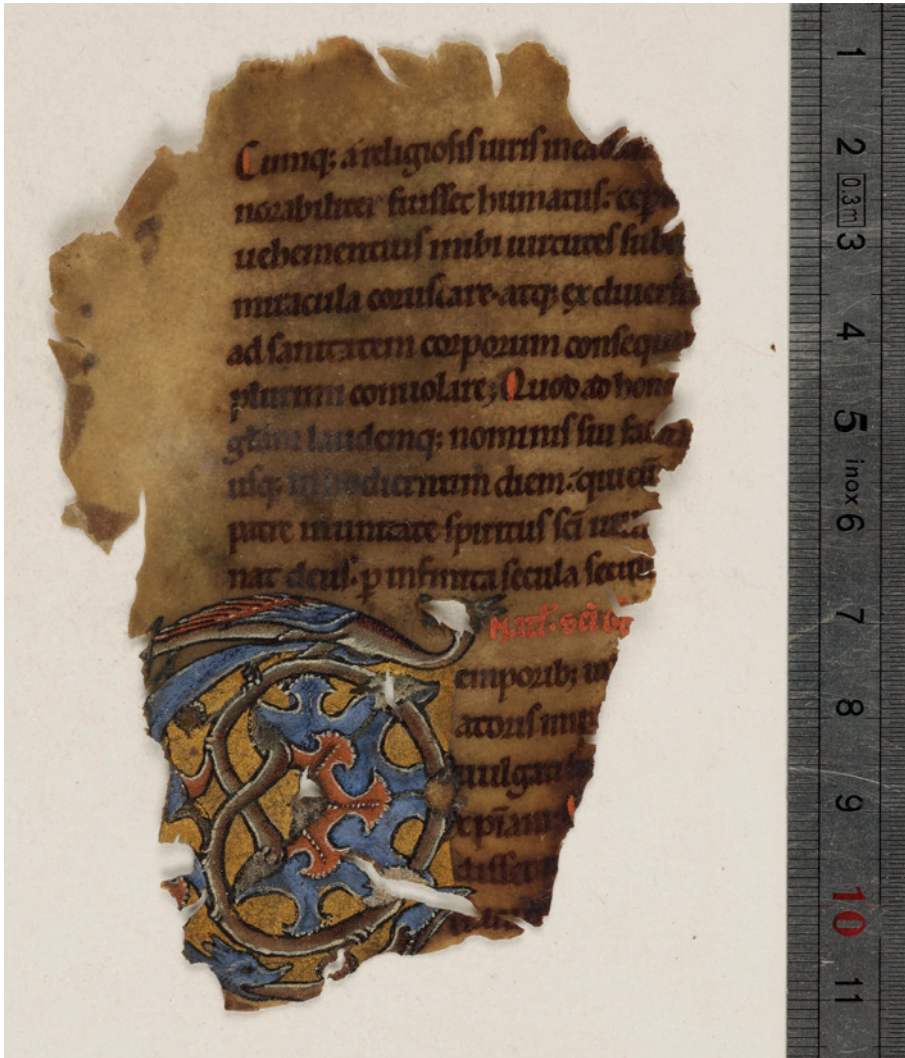 Cumq; a religiosis uiris in eadem
norabiliter fuisset humatus. cepe
uehementius inibi uirtutes sube
miracula coruscare. atq; ex diuersis
ad sanitatem corporum consequen
plurium conuolare; Quod ad hono
glam laudemq; nominis sui fac
usq; in hodiernum diem. qui cu
patre in unitate spiritus sci
nat deus. p infinita secula secul
emporib;
atoris imp
uulgau
xpian
disset
1
2
0.3m
3
4
5
inox
6
7
8
9
10
11